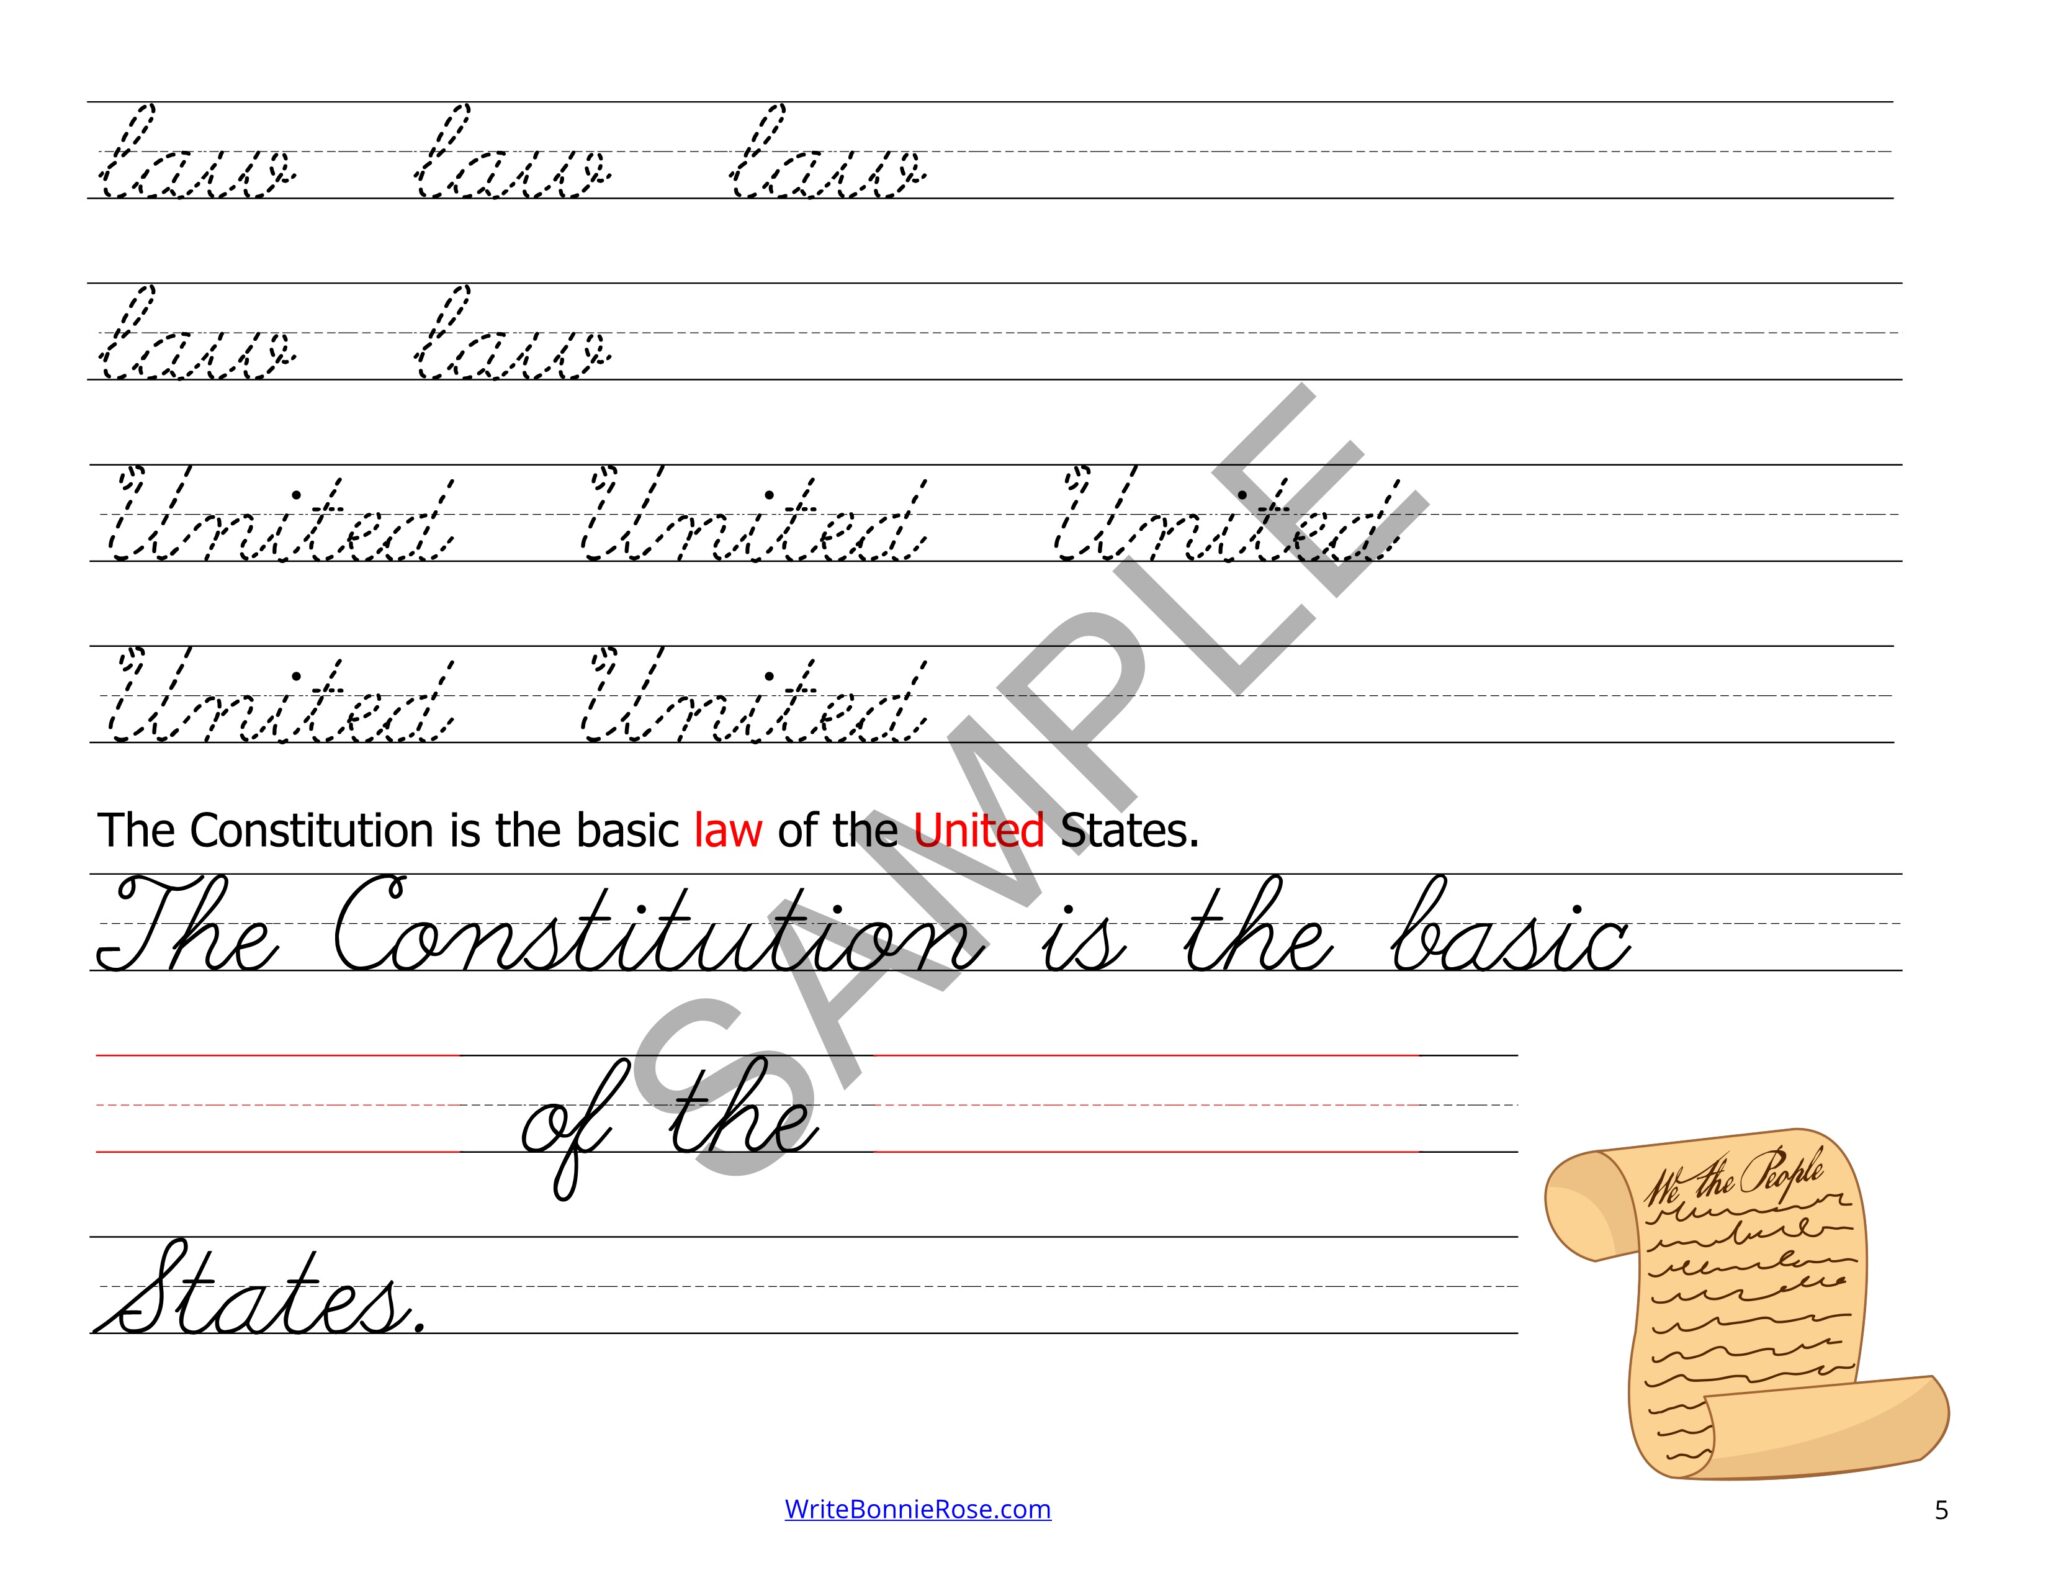 law law law
law law
United United United
United United
The Constitution is the basic law of the United States.
The Constitution is the basic
of the
States.
We the People
SAMPLE
WriteBonnieRose.com
5